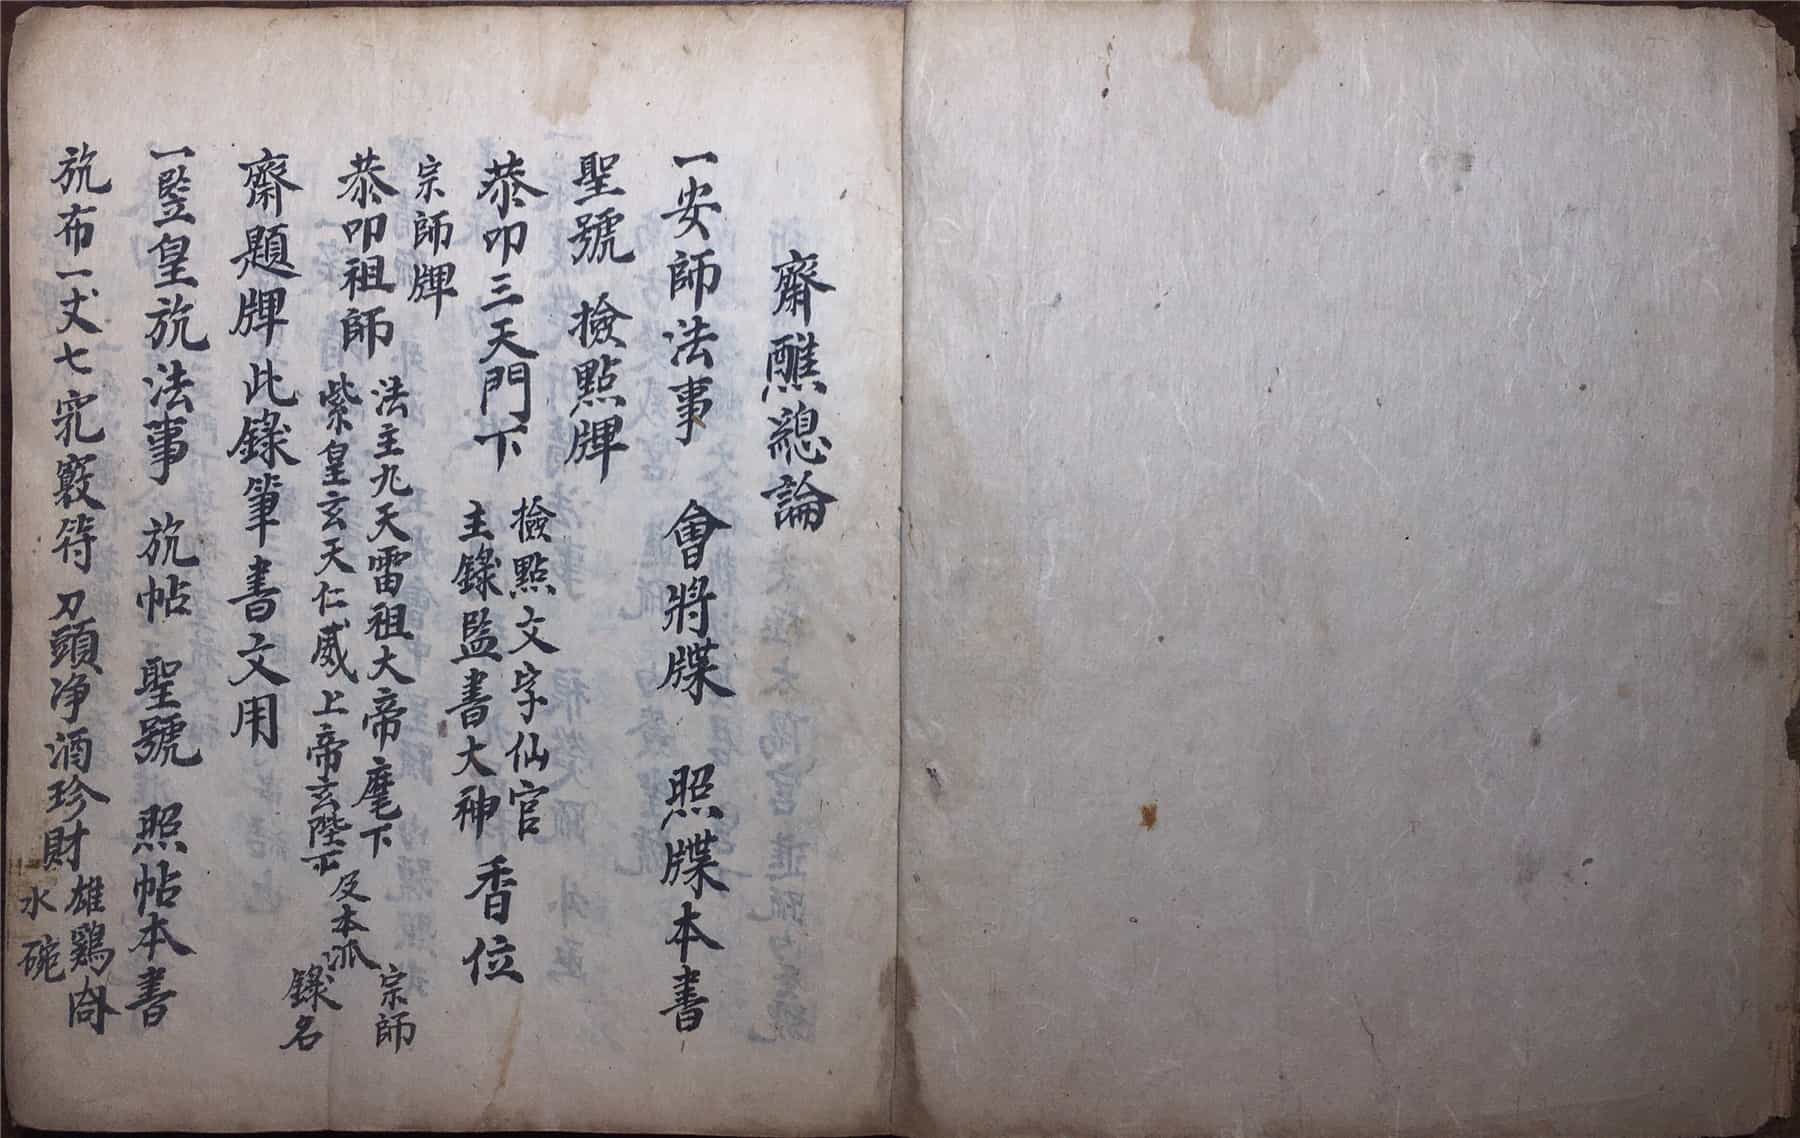 齋醮總論
一安師法事 會將牒 照牒本書
聖號 撿點牌
恭叩三天門下 撿點文字仙官 主錄監書大神 香位
宗師牌
恭叩祖師 法主九天雷祖大帝麾下 紫皇玄天仁威上帝玄陛下 及本派 宗師 錄名
齋題牌此錄筆書文用
一竪皇旂法事 旂帖 聖號 照帖本書
旂布一丈七 竅符 刀頭净酒珍財 雄鷄 水碗